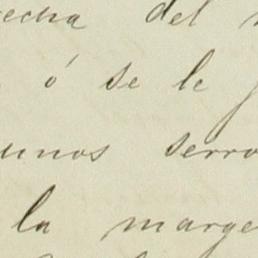 recha del
ó se le
unos serro
la marge